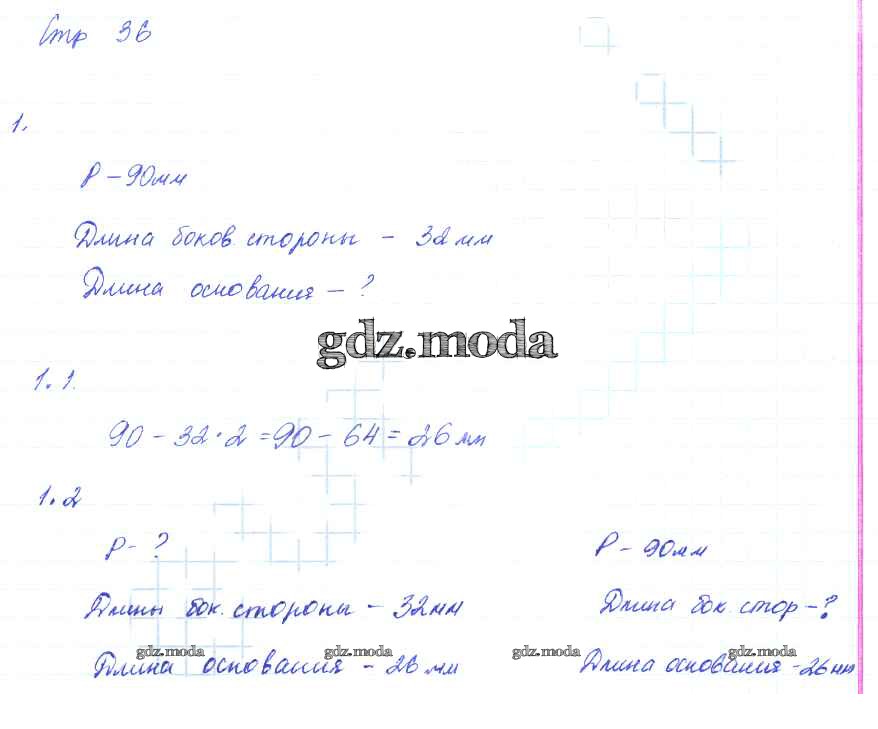 Стр 36
1.
P – 90мм
Длина боков. стороны – 32 мм
Длина основания – ?
gdz.moda
1.1.
90 – 32 · 2 = 90 – 64 = 26 мм
1.2
P - ? P – 90 мм
Длины бок. стороны – 32 мм Длина бок. стор – ?
gdz.moda gdz.moda gdz.moda gdz.moda
Длина основания – 26 мм Длина основания – 26 мм